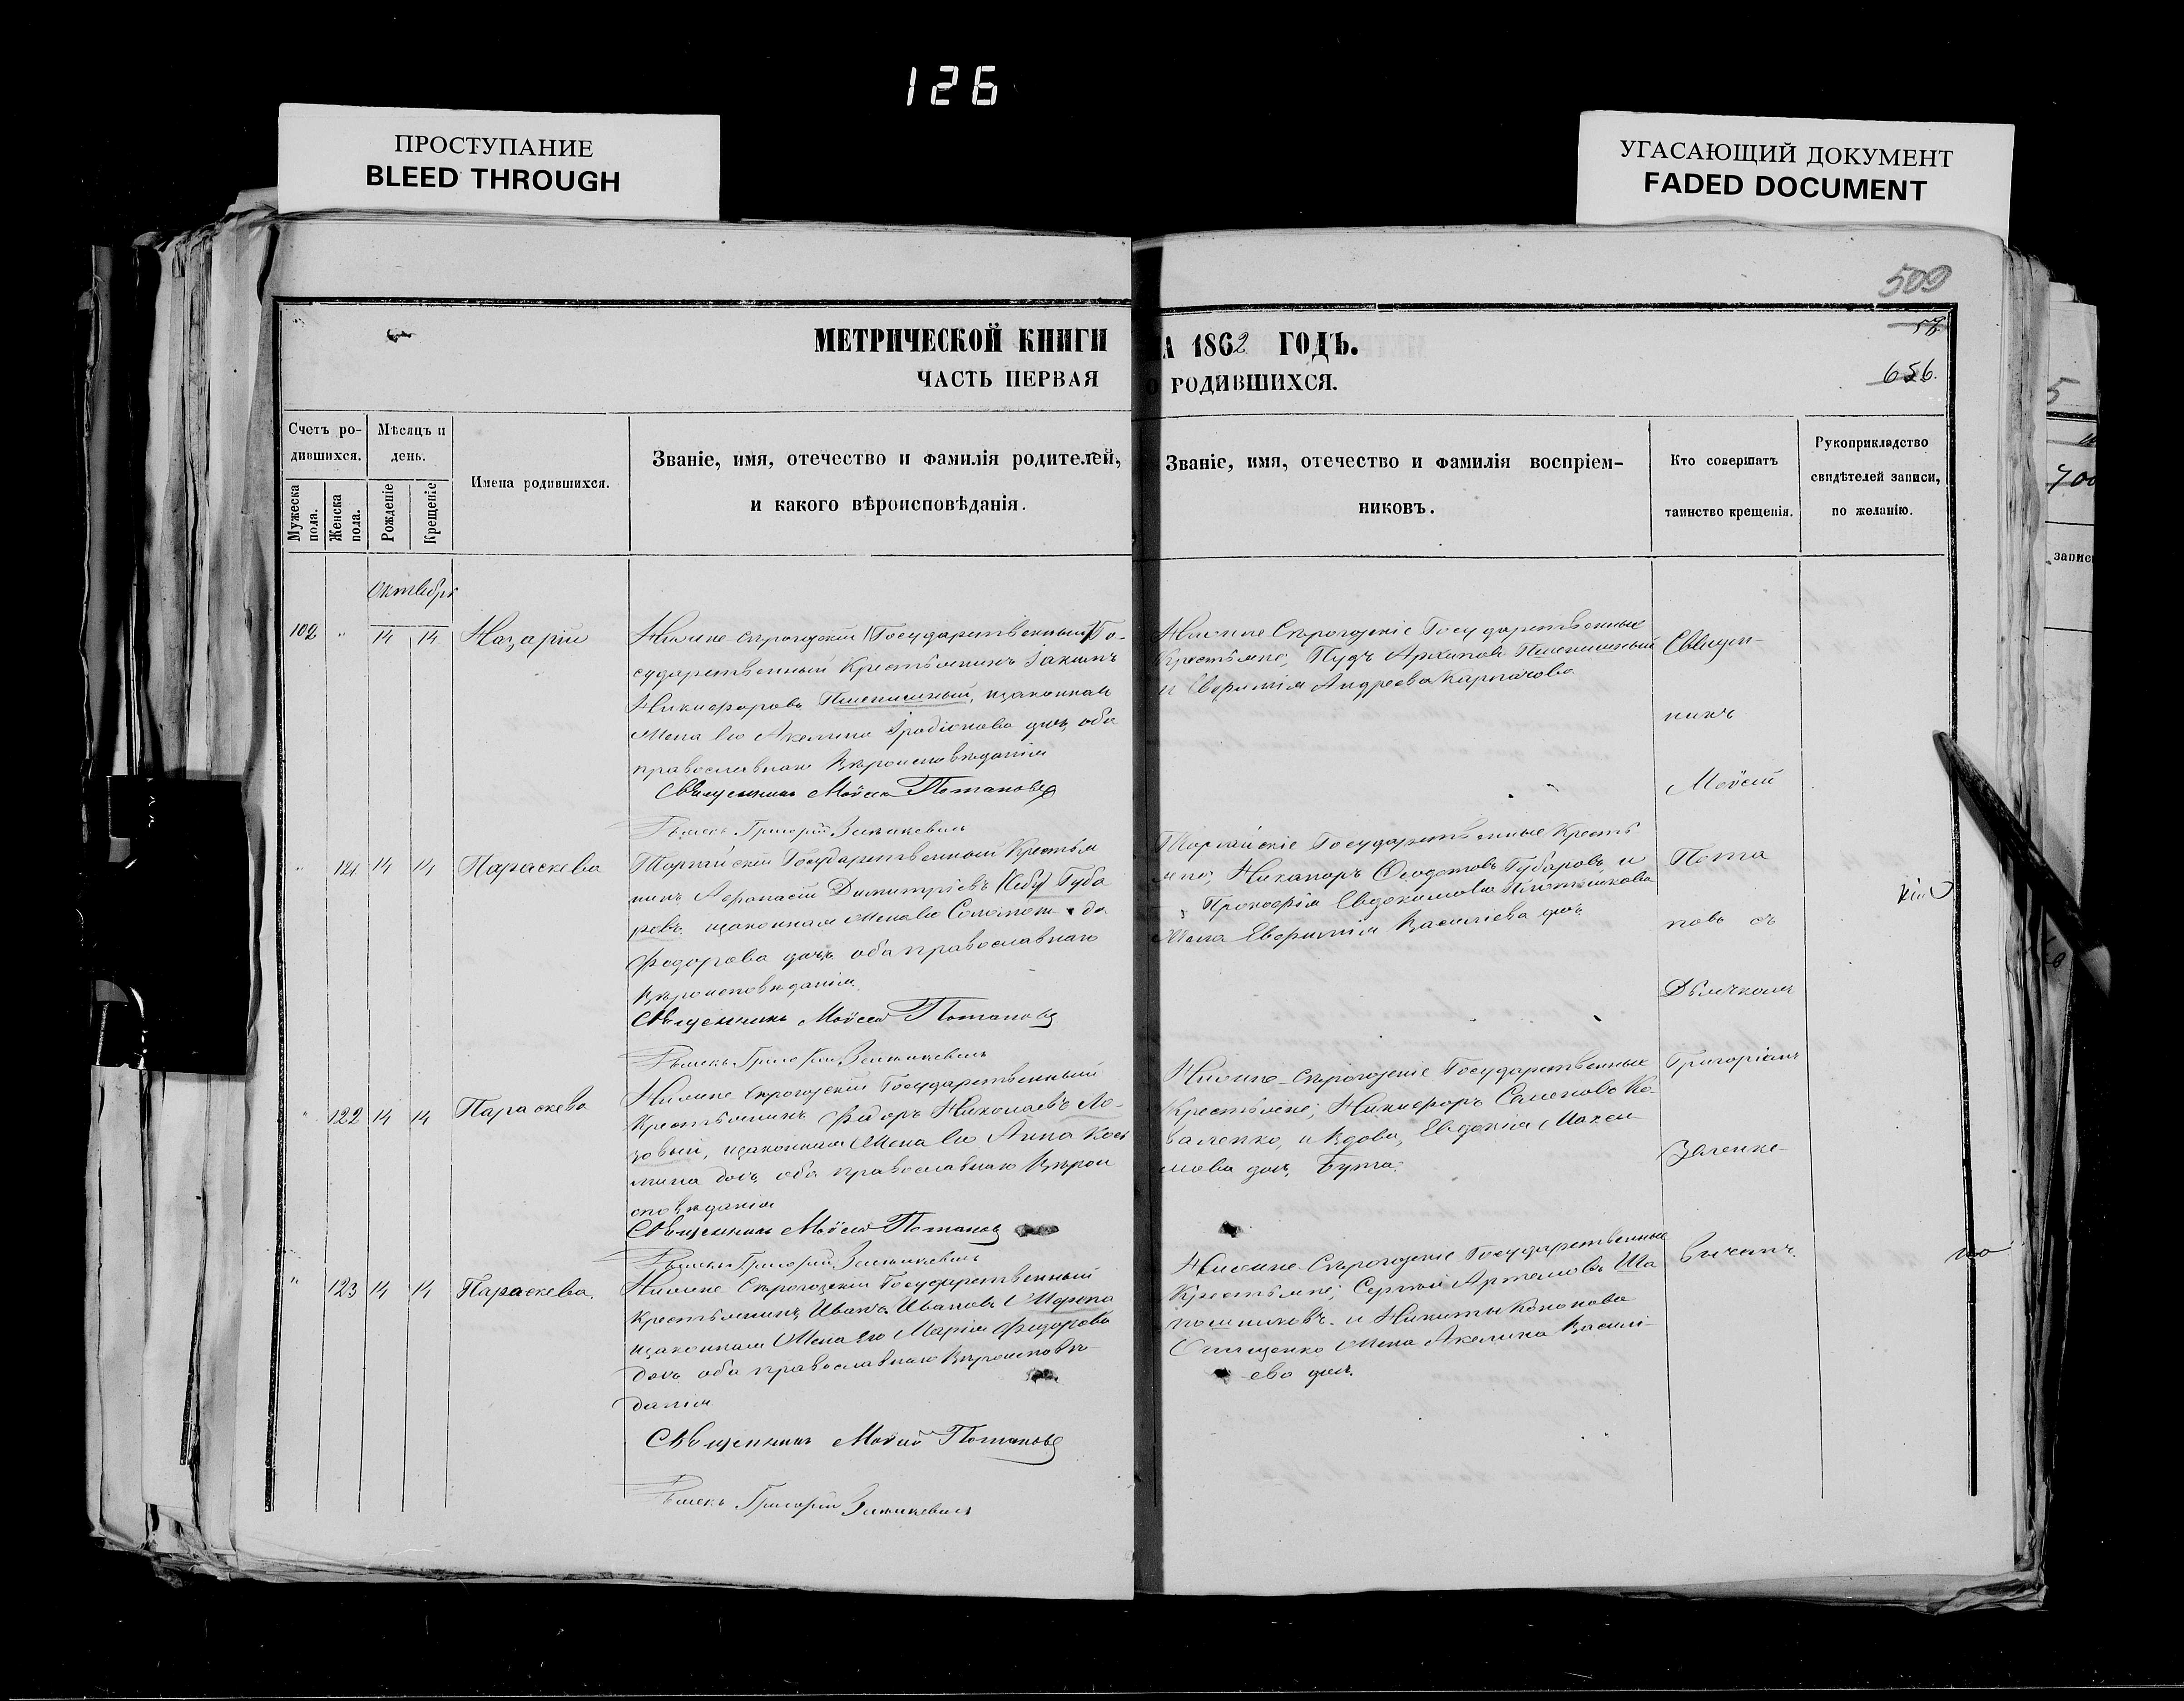 126
ПРОСТУПАНИЕ
BLEED THROUGH
УГАСАЮЩИЙ ДОКУМЕНТ
FADED DOCUMENT
509
МЕТРИЧЕСКОЙ КНИГИ
А 1862 ГОДЪ.
58
ЧАСТЬ ПЕРВАЯ
О РОДИВШИХСЯ.
656.
Счетъ ро-
дившихся.
Мужеска
пола.
Женска
пола.
Мѣсяцъ и
день.
Рожденіе
Крещеніе
Имена родившихся.
Званіе, имя, отечество и фамилія родителей,
и какого вѣроисповѣданія.
Званіе, имя, отечество и фамилія воспріем-
никовъ.
Кто совершатъ
таинство крещенія.
Рукоприкладство
свидѣтелей записи,
по желанію.
Октябрь
102 " 14 14 Назарій
Нижне Сѣрогозскій (Государственный) Го-
сударственный Крестьянинъ Іакимъ
Никифоровъ Пшеничный, изаконная
Жена Его Акелина Иродіонова дочь, оба
православнаго Вѣроисповѣданія
Священникъ Моѵсей Потаповъ
Дьячекъ Григорій Зеленкевичь
Нижне Сѣрогозскіе Государственные
Крестьяне, Пудъ Архиповъ Пшеничный
и Евфимія Андреева Карпачова
" 121 14 14 Параскева
Торгайскій Государственный Крестья
нинъ Афанасій Димитріевъ Губа
ровъ, изаконная Жена Его
Федорова дочь оба православнаго
Вѣроисповѣданія
Священникъ Моѵсей Потаповъ
Дьячекъ Григорій Зеленкевичь
Торгайскіе Государственные Кресть
яне, Никаноръ Ѳеодотовъ Губаровъ и
Прокофія Евдокимова
Жена Евфимія Васильева дочь
" 122 14 14 Параскева
Нижне Сѣрогозскій Государственный
Крестьянинъ Федоръ Николаевъ Ло-
зовый, изаконная Жена Его Анна Кось
мина дочь, оба православнаго Вѣрои
сповѣданія
Священникъ Моѵсей Потаповъ
Дьячекъ Григорій Зеленкевичь
Нижне-Сѣрогозскіе Государственные
Крестьяне; Никифоръ Семеновъ Ко-
валенко, и Вдова, Евдокія Макси-
мова дочь, Бутра.
" 123 14 14 Параскева.
Нижне Сѣрогозскій Государственный
Крестьянинъ Иванъ Ивановъ
изаконная Жена Его Марія Федорова
дочь оба православнаго Вѣроисповѣ-
данія
Священникъ Моѵсей Потаповъ
Дьячекъ Григорій Зеленкевичь
Нижне-Сѣрогозскіе Государственные
Крестьяне; Сергѣй Артемовъ Ша
пошниковъ. и Никиты Кононова
Жена Акелина Васильі-
ева дочь.
Священ-
никъ
Моѵсей
Пота
повъ съ
Дьячкомъ
Григоріемъ
Зеленке-
вичемъ.